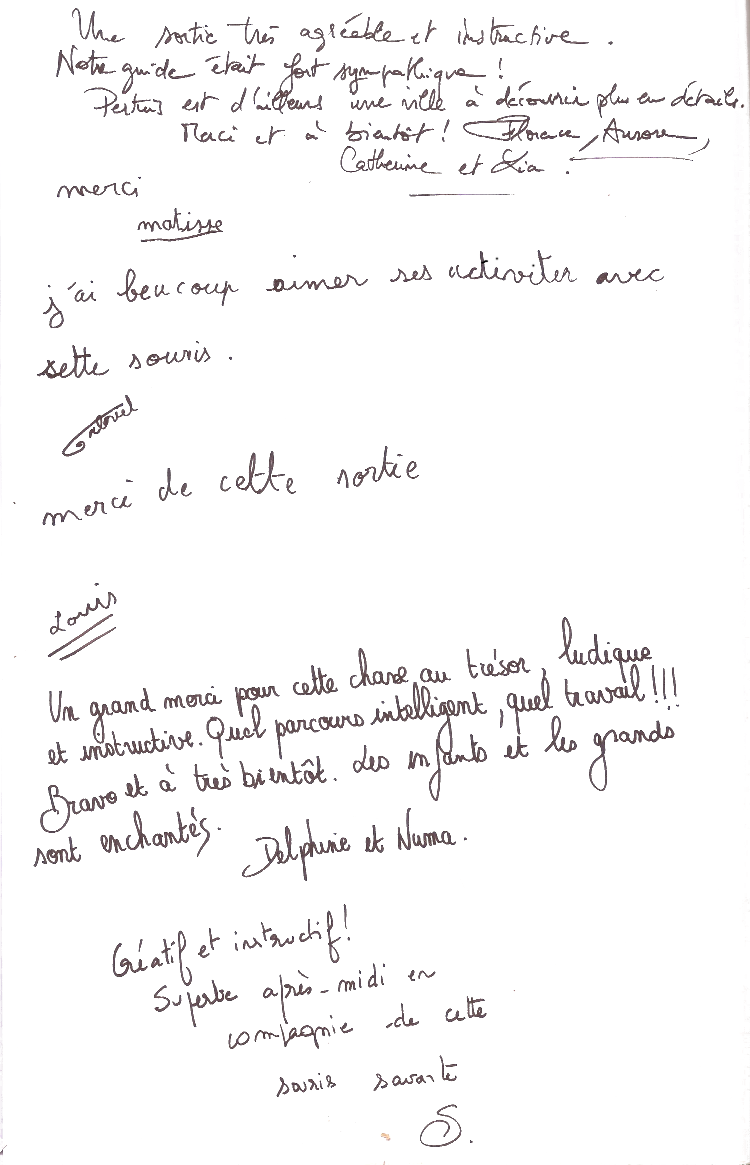 Une sortie très agréable et instructive.
Notre guide était fort sympathique !
Pertuis est d'ailleurs une ville à découvrir plus en détails.
Merci et à bientôt ! Florence, Aurore,
Catherine et Lia.
merci
matisse
j'ai beucoup aimer ses activiter avec
sette souris.
merci de cette sortie
Louis
Un grand merci pour cette chasse au trésor, ludique
et instructive. Quel parcours intelligent, quel travail !!!
Bravo et à très bientôt. Les enfants et les grands
sont enchantés.
Delphine et Numa.
Créatif et instructif !
Superbe après-midi en
compagnie de cette
souris savante
S.